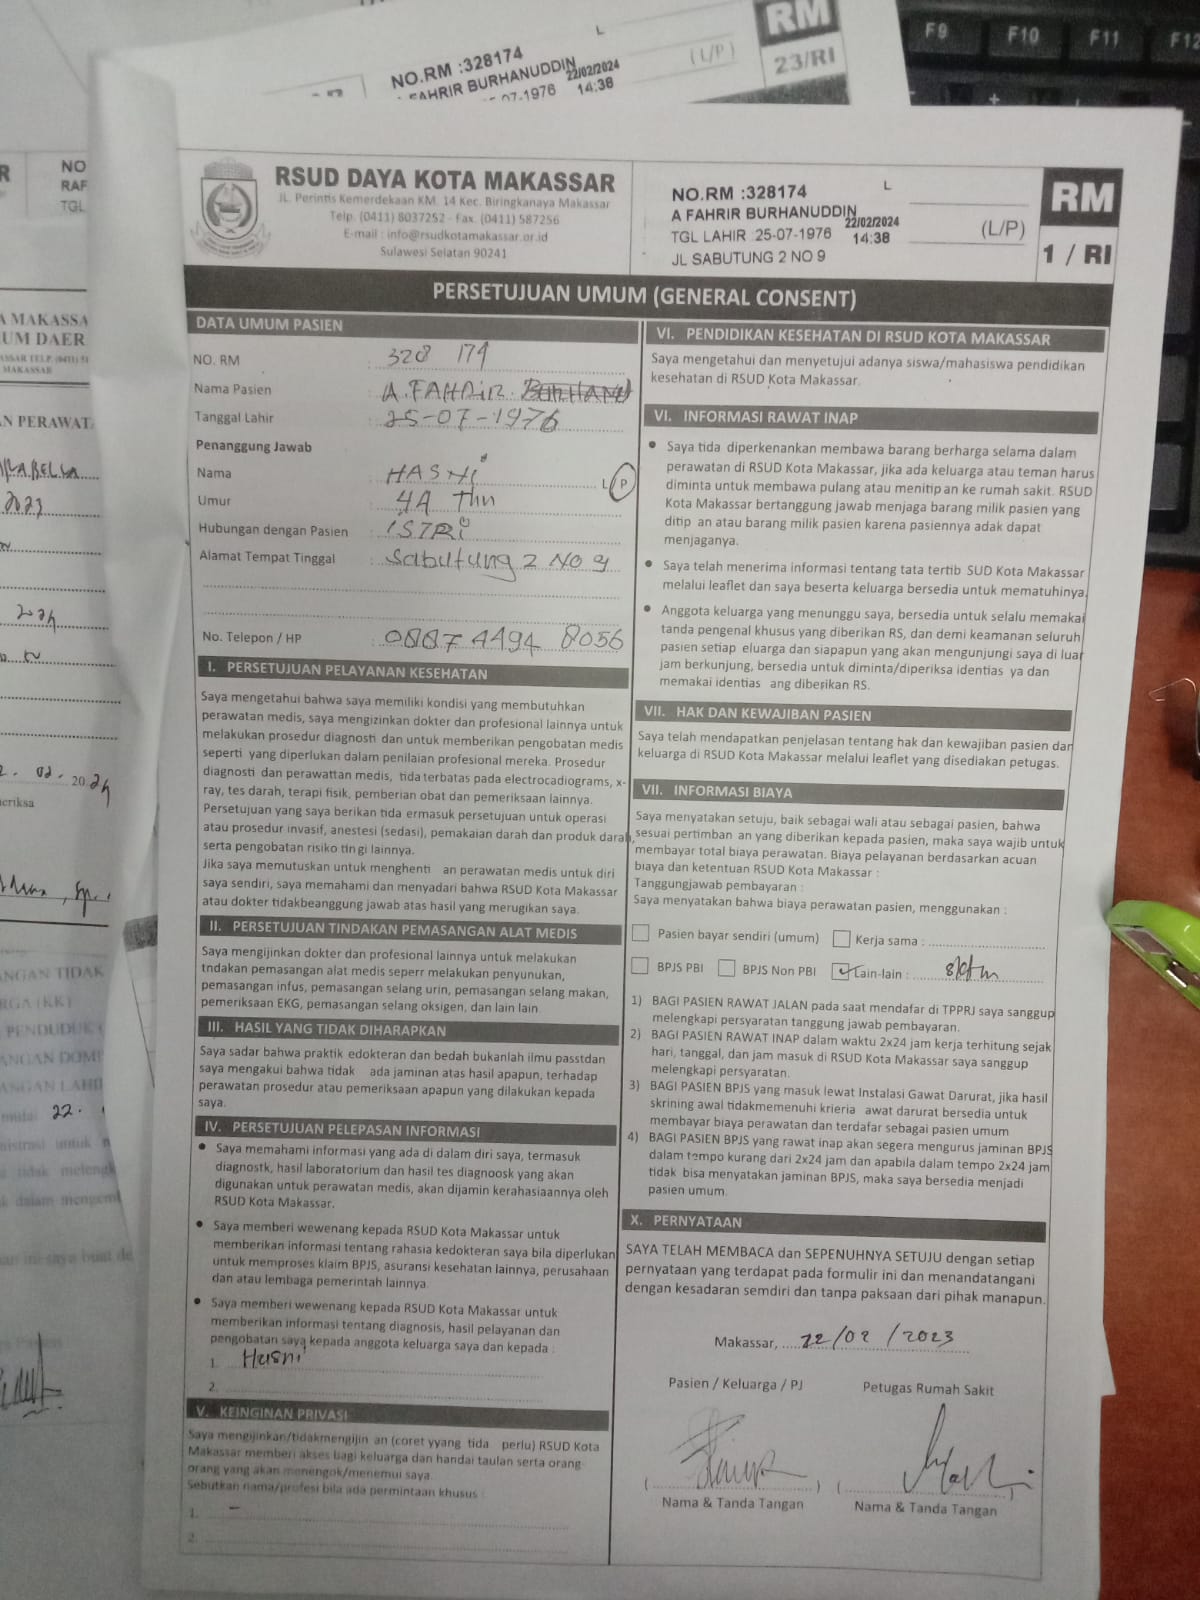 NO.RM :328174
A FAHRIR BURHANUDDIN
22/02/2024
07-1976
14:38
L
(L/P)
RM
23/RI
F9
F10
F11
F12
NO
RAF
TGL
A MAKASSA
UM DAER
MAKASSAR
AN PERAWAT
2023
2024
02. 2024
eriksa
ANGAN TIDAK
RGA (KK)
PENDUDUK
ANGAN DOMI
ANGAN LAHI
mulai 22.
RSUD DAYA KOTA MAKASSAR
JL. Perintis Kemerdekaan KM. 14 Kec. Biringkanaya Makassar
Telp. (0411) 8037252 - Fax. (0411) 587256
E-mail : info@rsudkotamakassar.or.id
Sulawesi Selatan 90241
NO.RM :328174
L
A FAHRIR BURHANUDDIN
22/02/2024
TGL LAHIR 25-07-1976
14:38
JL SABUTUNG 2 NO 9
(L/P)
RM
1 / RI
PERSETUJUAN UMUM (GENERAL CONSENT)
DATA UMUM PASIEN
NO. RM : 328 174
Nama Pasien : A. FAHRIR
Tanggal Lahir : 25-07-1976
Penanggung Jawab
Nama : HASNI L/P
Umur : 44 Thn
Hubungan dengan Pasien : ISTRI
Alamat Tempat Tinggal : Sabutung 2 No 9
No. Telepon / HP : 0887 4494 8056
I. PERSETUJUAN PELAYANAN KESEHATAN
Saya mengetahui bahwa saya memiliki kondisi yang membutuhkan
perawatan medis, saya mengizinkan dokter dan profesional lainnya untuk
melakukan prosedur diagnosti dan untuk memberikan pengobatan medis
seperti yang diperlukan dalam penilaian profesional mereka. Prosedur
diagnosti dan perawattan medis, tida terbatas pada electrocadiograms, x-
ray, tes darah, terapi fisik, pemberian obat dan pemeriksaan lainnya.
Persetujuan yang saya berikan tida ermasuk persetujuan untuk operasi
atau prosedur invasif, anestesi (sedasi), pemakaian darah dan produk darah,
serta pengobatan risiko tin gi lainnya.
Jika saya memutuskan untuk menghenti an perawatan medis untuk diri
saya sendiri, saya memahami dan menyadari bahwa RSUD Kota Makassar
atau dokter tidakbeanggung jawab atas hasil yang merugikan saya.
II. PERSETUJUAN TINDAKAN PEMASANGAN ALAT MEDIS
Saya mengijinkan dokter dan profesional lainnya untuk melakukan
tndakan pemasangan alat medis seperr melakukan penyunukan,
pemasangan infus, pemasangan selang urin, pemasangan selang makan,
pemeriksaan EKG, pemasangan selang oksigen, dan lain lain.
III. HASIL YANG TIDAK DIHARAPKAN
Saya sadar bahwa praktik edokteran dan bedah bukanlah ilmu passtdan
saya mengakui bahwa tidak ada jaminan atas hasil apapun, terhadap
perawatan prosedur atau pemeriksaan apapun yang dilakukan kepada
saya.
IV. PERSETUJUAN PELEPASAN INFORMASI
• Saya memahami informasi yang ada di dalam diri saya, termasuk
diagnostk, hasil laboratorium dan hasil tes diagnoosk yang akan
digunakan untuk perawatan medis, akan dijamin kerahasiaannya oleh
RSUD Kota Makassar.
• Saya memberi wewenang kepada RSUD Kota Makassar untuk
memberikan informasi tentang rahasia kedokteran saya bila diperlukan
untuk memproses klaim BPJS, asuransi kesehatan lainnya, perusahaan
dan atau lembaga pemerintah lainnya.
• Saya memberi wewenang kepada RSUD Kota Makassar untuk
memberikan informasi tentang diagnosis, hasil pelayanan dan
pengobatan saya kepada anggota keluarga saya dan kepada :
1. Hasni
2.
V. KEINGINAN PRIVASI
Saya mengijinkan/tidakmengijin an (coret yyang tida perlu) RSUD Kota
Makassar memberi akses bagi keluarga dan handai taulan serta orang
orang yang akan menengok/menemui saya.
Sebutkan nama/profesi bila ada permintaan khusus :
1. –
2.
VI. PENDIDIKAN KESEHATAN DI RSUD KOTA MAKASSAR
Saya mengetahui dan menyetujui adanya siswa/mahasiswa pendidikan
kesehatan di RSUD Kota Makassar.
VI. INFORMASI RAWAT INAP
• Saya tida diperkenankan membawa barang berharga selama dalam
perawatan di RSUD Kota Makassar, jika ada keluarga atau teman harus
diminta untuk membawa pulang atau menitip an ke rumah sakit. RSUD
Kota Makassar bertanggung jawab menjaga barang milik pasien yang
ditip an atau barang milik pasien karena pasiennya adak dapat
menjaganya.
• Saya telah menerima informasi tentang tata tertib SUD Kota Makassar
melalui leaflet dan saya beserta keluarga bersedia untuk mematuhinya.
• Anggota keluarga yang menunggu saya, bersedia untuk selalu memakai
tanda pengenal khusus yang diberikan RS, dan demi keamanan seluruh
pasien setiap eluarga dan siapapun yang akan mengunjungi saya di luar
jam berkunjung, bersedia untuk diminta/diperiksa identias ya dan
memakai identias ang diberikan RS.
VII. HAK DAN KEWAJIBAN PASIEN
Saya telah mendapatkan penjelasan tentang hak dan kewajiban pasien dan
keluarga di RSUD Kota Makassar melalui leaflet yang disediakan petugas.
VII. INFORMASI BIAYA
Saya menyatakan setuju, baik sebagai wali atau sebagai pasien, bahwa
sesuai pertimban an yang diberikan kepada pasien, maka saya wajib untuk
membayar total biaya perawatan. Biaya pelayanan berdasarkan acuan
biaya dan ketentuan RSUD Kota Makassar :
Tanggungjawab pembayaran :
Saya menyatakan bahwa biaya perawatan pasien, menggunakan :
Pasien bayar sendiri (umum) Kerja sama :
BPJS PBI BPJS Non PBI Lain-lain : sktm
1) BAGI PASIEN RAWAT JALAN pada saat mendafar di TPPRJ saya sanggup
melengkapi persyaratan tanggung jawab pembayaran.
2) BAGI PASIEN RAWAT INAP dalam waktu 2x24 jam kerja terhitung sejak
hari, tanggal, dan jam masuk di RSUD Kota Makassar saya sanggup
melengkapi persyaratan.
3) BAGI PASIEN BPJS yang masuk lewat Instalasi Gawat Darurat, jika hasil
skrining awal tidakmemenuhi krieria awat darurat bersedia untuk
membayar biaya perawatan dan terdafar sebagai pasien umum
4) BAGI PASIEN BPJS yang rawat inap akan segera mengurus jaminan BPJS
dalam tempo kurang dari 2x24 jam dan apabila dalam tempo 2x24 jam
tidak bisa menyatakan jaminan BPJS, maka saya bersedia menjadi
pasien umum.
X. PERNYATAAN
SAYA TELAH MEMBACA dan SEPENUHNYA SETUJU dengan setiap
pernyataan yang terdapat pada formulir ini dan menandatangani
dengan kesadaran semdiri dan tanpa paksaan dari pihak manapun.
Makassar, 22/02/2023
Pasien / Keluarga / PJ Petugas Rumah Sakit
Nama & Tanda Tangan Nama & Tanda Tangan